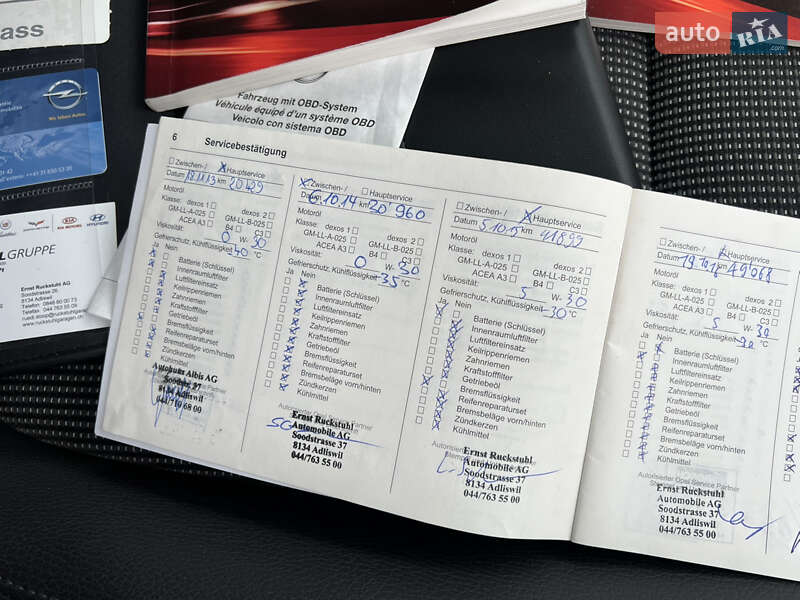 auto RIA
ass
Wir leben Autos.
Fahrzeug mit OBD-System
Véhicule équipé d'un système OBD
Veicolo con sistema OBD
KIA MOTORS HYUNDAI
GRUPPE
Ernst Ruckstuhl AG
Soodstrasse 37
8134 Adliswil
6 Servicebestätigung
Zwischen-/ X Hauptservice
km 20429
Motoröl
Klasse: dexos 1 dexos 2
GM-LL-A-025 GM-LL-B-025
ACEA A3 B4 C3
Viskosität: 0 W- 30
Gefrierschutz, Kühlflüssigkeit -40 °C
Ja Nein
Batterie (Schlüssel)
Innenraumluftfilter
Luftfiltereinsatz
Keilrippenriemen
Zahnriemen
Kraftstofffilter
Getriebeöl
Bremsflüssigkeit
Reifenreparaturset
Bremsbeläge vorn/hinten
Zündkerzen
Kühlmittel
Autohaus Albis AG
Soodstr. 57
8134 Adliswil
X Zwischen-/ Hauptservice
Datum 6.10.14 km 30 960
Motoröl
Klasse: dexos 1 dexos 2
GM-LL-A-025 GM-LL-B-025
ACEA A3 B4 C3
Viskosität: 0 W- 30
Gefrierschutz, Kühlflüssigkeit -35 °C
Ja Nein
Batterie (Schlüssel)
Innenraumluftfilter
Luftfiltereinsatz
Keilrippenriemen
Zahnriemen
Kraftstofffilter
Getriebeöl
Bremsflüssigkeit
Reifenreparaturset
Bremsbeläge vorn/hinten
Zündkerzen
Kühlmittel
Autorisierter Opel Service Partner
Ernst Ruckstuhl
Automobile AG
Soodstrasse 37
8134 Adliswil
044/763 55 00
Zwischen-/ X Hauptservice
Datum 5.10.15 km 41899
Motoröl
Klasse: dexos 1 dexos 2
GM-LL-A-025 GM-LL-B-025
ACEA A3 B4 C3
Viskosität: 5 W- 30
Gefrierschutz, Kühlflüssigkeit -30 °C
Ja Nein
Batterie (Schlüssel)
Innenraumluftfilter
Luftfiltereinsatz
Keilrippenriemen
Zahnriemen
Kraftstofffilter
Getriebeöl
Bremsflüssigkeit
Reifenreparaturset
Bremsbeläge vorn/hinten
Zündkerzen
Kühlmittel
Ernst Ruckstuhl
Automobile AG
Soodstrasse 37
8134 Adliswil
044/763 55 00
Zwischen-/ X Hauptservice
Datum km 49068
Motoröl
Klasse: dexos 1 dexos 2
GM-LL-A-025 GM-LL-B-025
ACEA A3 B4 C3
Viskosität: 5 W- 30
Gefrierschutz, Kühlflüssigkeit °C
Ja Nein
Batterie (Schlüssel)
Innenraumluftfilter
Luftfiltereinsatz
Keilrippenriemen
Zahnriemen
Kraftstofffilter
Getriebeöl
Bremsflüssigkeit
Reifenreparaturset
Bremsbeläge vorn/hinten
Zündkerzen
Kühlmittel
Autorisierter Opel Service Partner
Ernst Ruckstuhl
Automobile AG
Soodstrasse 37
8134 Adliswil
044/763 55 00